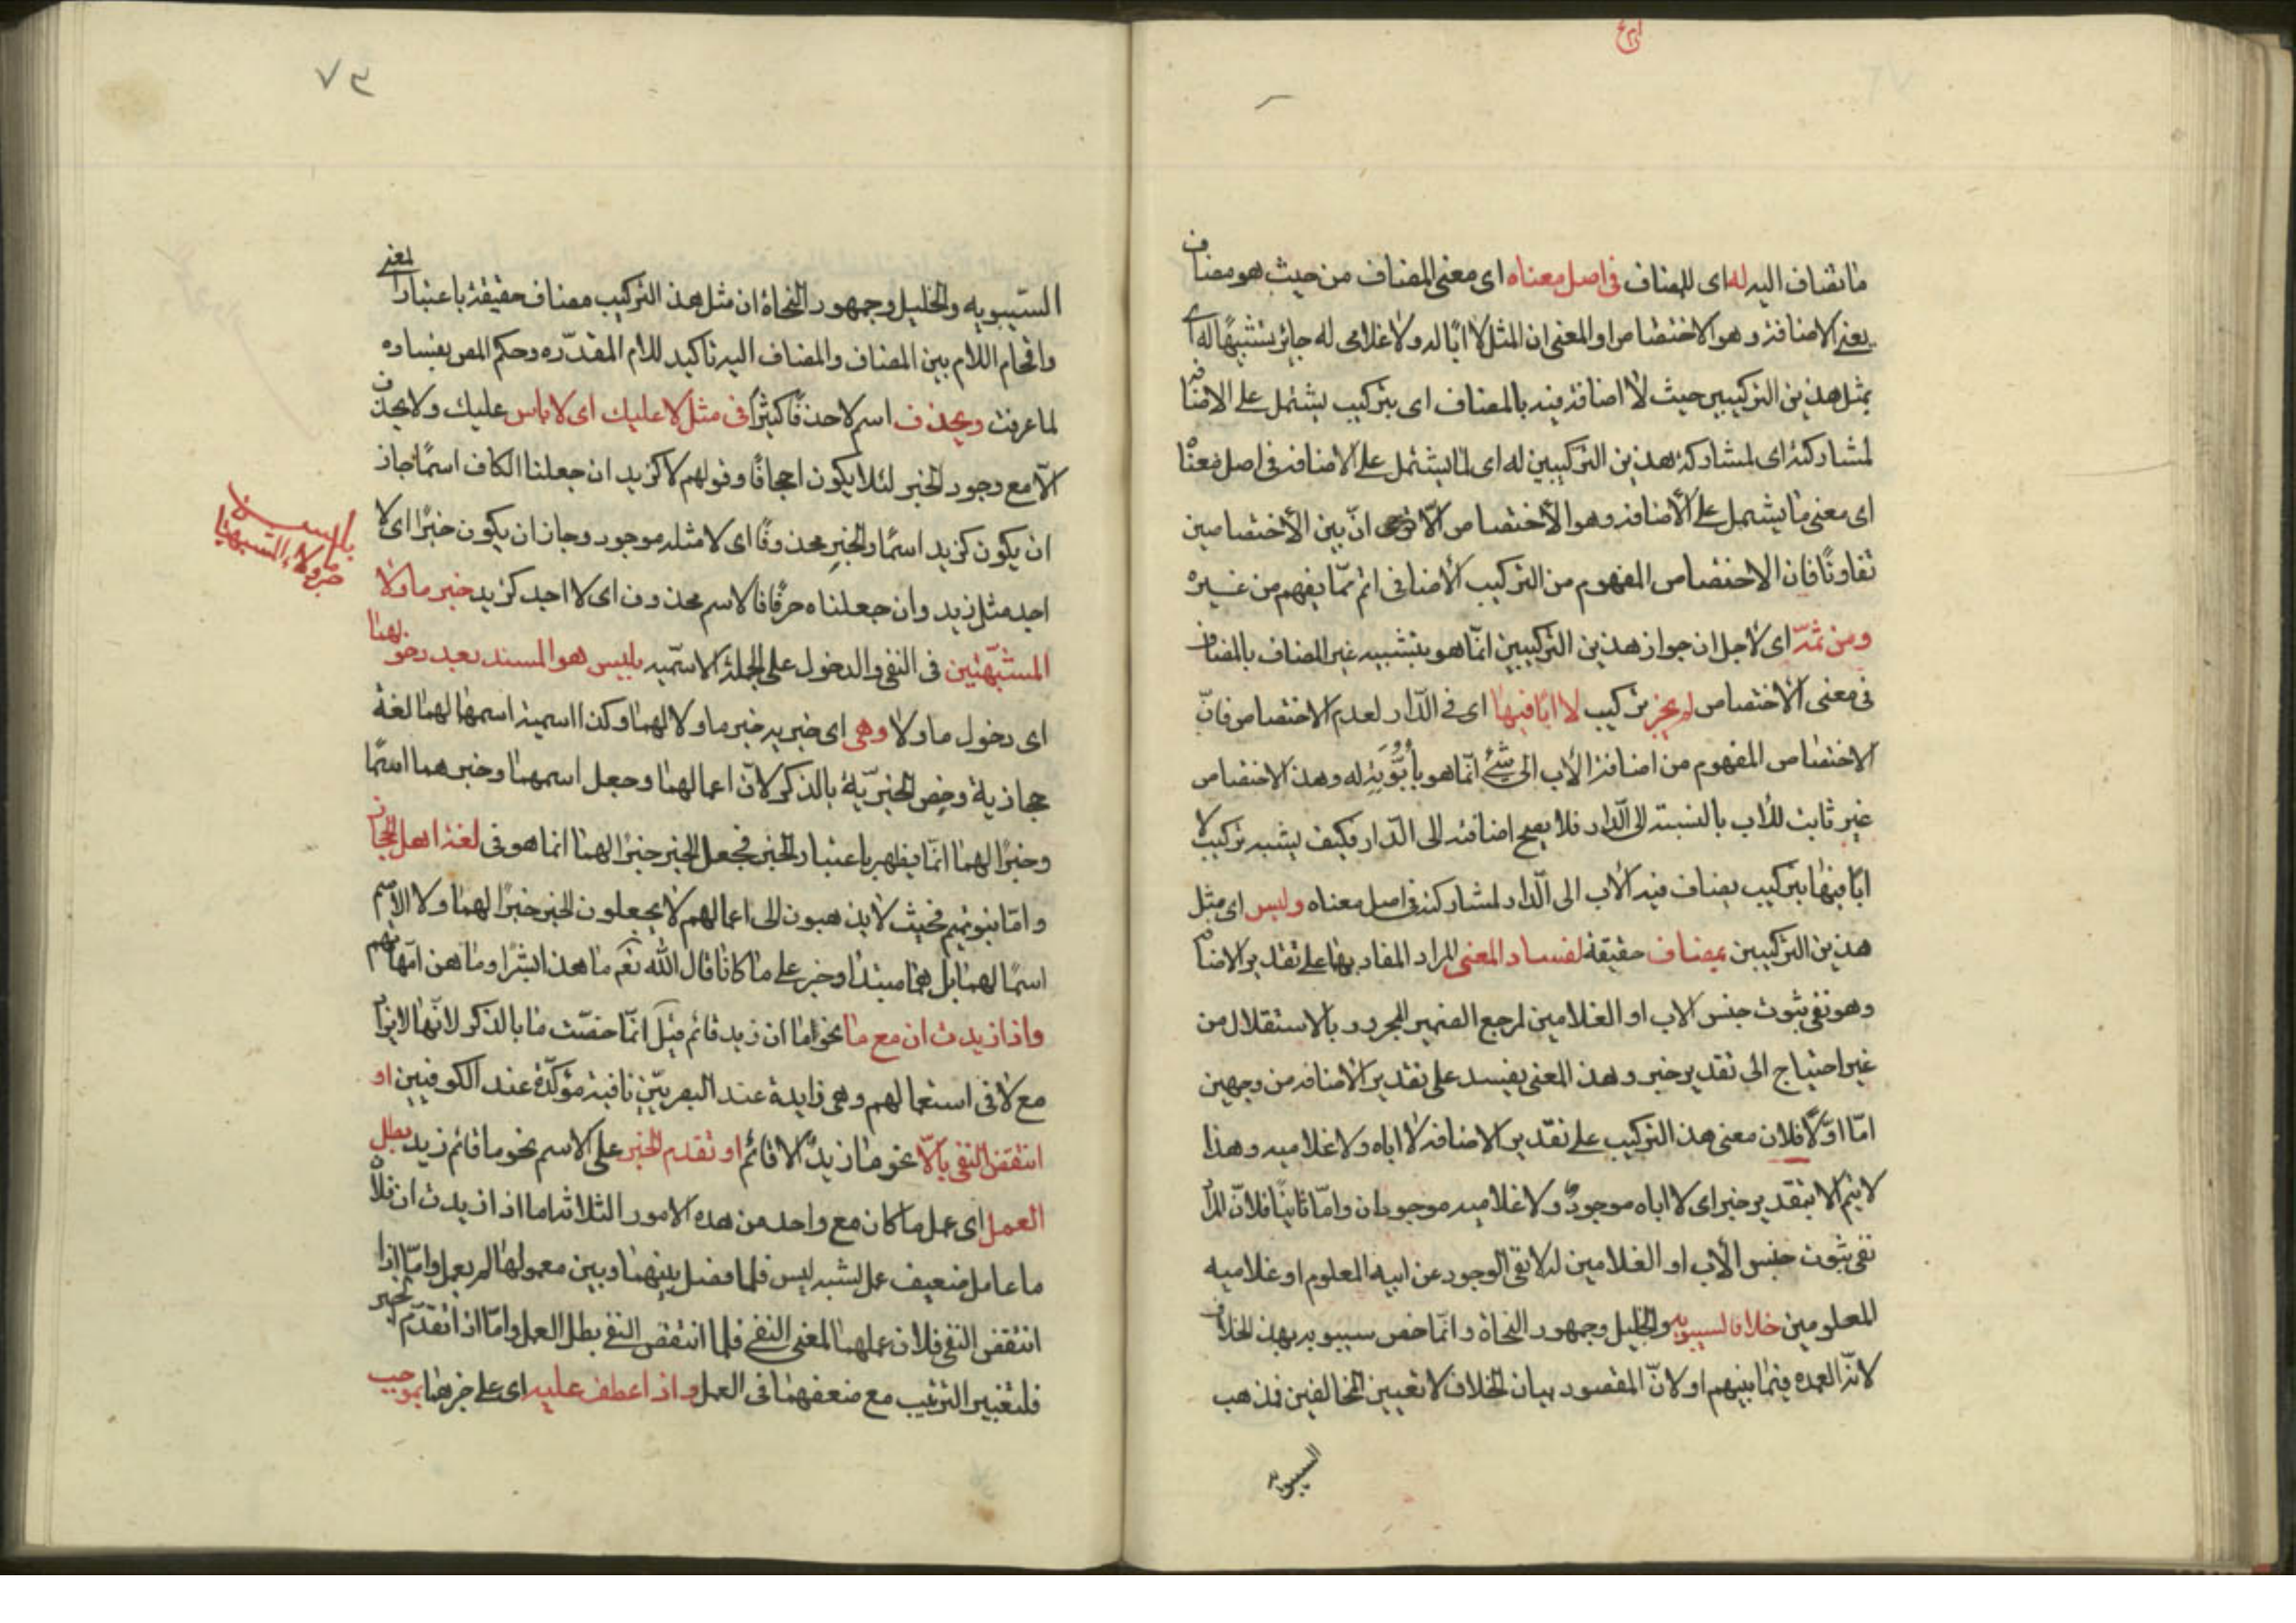 ما يضاف اليه له اى للمضاف فى اصل معناه اى معنى المضاف من حيث هو مضاف
يعنى الاضافة وهو الاختصاص او المعنى ان المثل لا ابا له ولا غلامى له جائز تشبيها له اى
بمثل هذين التركيبين حيث لا اضافة فيه بالمضاف اى بتركيب يشتمل على الاضافة
لمشاركته اى لمشاركة هذين التركيبين له اى لما يشتمل على الاضافة فى اصل معناه
اى معنى ما يشتمل على الاضافة وهو الاختصاص الا انّ بين الاختصاصين
تفاوتًا فان الاختصاص المفهوم من التركيب الاضافى اتم ممّا يفهم من غيره
ومن ثمّه اى لاجل ان جواز هذين التركيبين انّما هو بتشبيه غير المضاف بالمضاف
فى معنى الاختصاص لم يجز تركيب لا ابا فيها اى فى الدّار لعدم الاختصاص فانّ
الاختصاص المفهوم من اضافة الاب الى شئ انّما هو بأبُوَّتِه له وهذا الاختصاص
غير ثابت للاب بالنسبة الى الدّار فلا يصح اضافته الى الدّار فكيف يشبه تركيب لا
ابا فيها بتركيب يضاف فيه الاب الى الدّار لمشاركته فى اصل معناه وليس اى مثل
هذين التركيبين بمضاف حقيقة لفساد المعنى المراد المفاد بها على تقدير الاضافة
وهو نفى ثبوت جنس الاب او الغلامين لمرجع الضمير المجرور بالاستقلال من
غير احتياج الى تقدير خبر وهذا المعنى يفسد على تقدير الاضافه من وجهين
امّا اوّلًا فلان معنى هذا التركيب على تقدير الاضافه لا اباه ولا غلاميه وهذا
لا يتم الا بتقدير خبر اى لا اباه موجودٌ ولا غلاميه موجودان وامّا ثانيًا فلانّ المراد
نفى ثبوت جنس الاب او الغلامين له لا نفى الوجود عن ابيه المعلوم او غلاميه
المعلومين خلافا لسيبويه والخليل وجمهور النحاة وانّما خص سيبويه بهذا الخلاف
لانّه العمده فيما بينهم او لانّ المقصود بيان الخلاف لا تعيين المخالفين فذهب
السيبويه
٧٣
السّيبويه والخليل وجمهور النحاة ان مثل هذا التركيب مضاف حقيقة باعتبار المعنى
واقحام اللام بين المضاف والمضاف اليه تاكيد للام المقدّره وحكم المص بفساده
لما عرفت ويحذف اسم لا حذفًا كثيرًا فى مثل لا عليك اى لا باس عليك ولا يحذف
الّا مع وجود الخبر لئلا يكون اجحافًا وقولهم لا كزيد ان جعلنا الكاف اسمًا جاز
ان يكون كزيد اسمًا والخبر محذوفًا اى لا مثله موجود وجاز ان يكون خبرًا اى لا
احد مثل زيد وان جعلناه حرفًا فالاسم محذوف اى لا احد كزيد خبر ما ولا
المشبّهتين فى النفى والدخول على الجملة الاسميّه بليس هو المسند بعد دخولهما
اى دخول ما ولا وهى اى خبريه خبر ما ولا لهما وكذا اسمية اسمها لهما لغة
حجازية وخصّ الخبريّة بالذكر لانّ اعمالهما وجعل اسمهما وخبرهما اسمًا
وخبرًا لهما انّما يظهر باعتبار الخبر فجعل الخبر خبرًا لهما انما هو فى لغة اهل الحجاز
وامّا بنو تميم فحيث لا يذهبون الى اعمالهم لا يجعلون الخبر خبرًا لهما ولا الاسم
اسمًا لهما بل هما مبتدا وخبر على ما كانا قال الله تعم ما هذا بشرًا وما هن امّهاتهم
واذا زيدت ان مع ما نحو ما ان زيد قائم قيل انّما خصّت ما بالذكر لانّها لا تزاد
مع لا فى استعمالهم وهى زايدة عند البصريّين نافية مؤكّدة عند الكوفيين او
انتقض النفى بالّا نحو ما زيدٌ الا قائم او تقدم الخبر على الاسم نحو ما قائم زيد بطل
العمل اى عمل ما كان مع واحد من هذه الامور الثلاثه اما اذا زيدت ان فلانّ
ما عامل ضعيف عمل لشبه ليس فلما فصل بينهما وبين معمولها لم يعمل وامّا اذا
انتقض النفى فلان عملهما لمعنى النفى فلما انتقض النفى بطل العمل وامّا اذا تقدّم الخبر
فلتغيير الترتيب مع ضعفهما فى العمل واذا عطف عليه اى على خبرهما بموجب